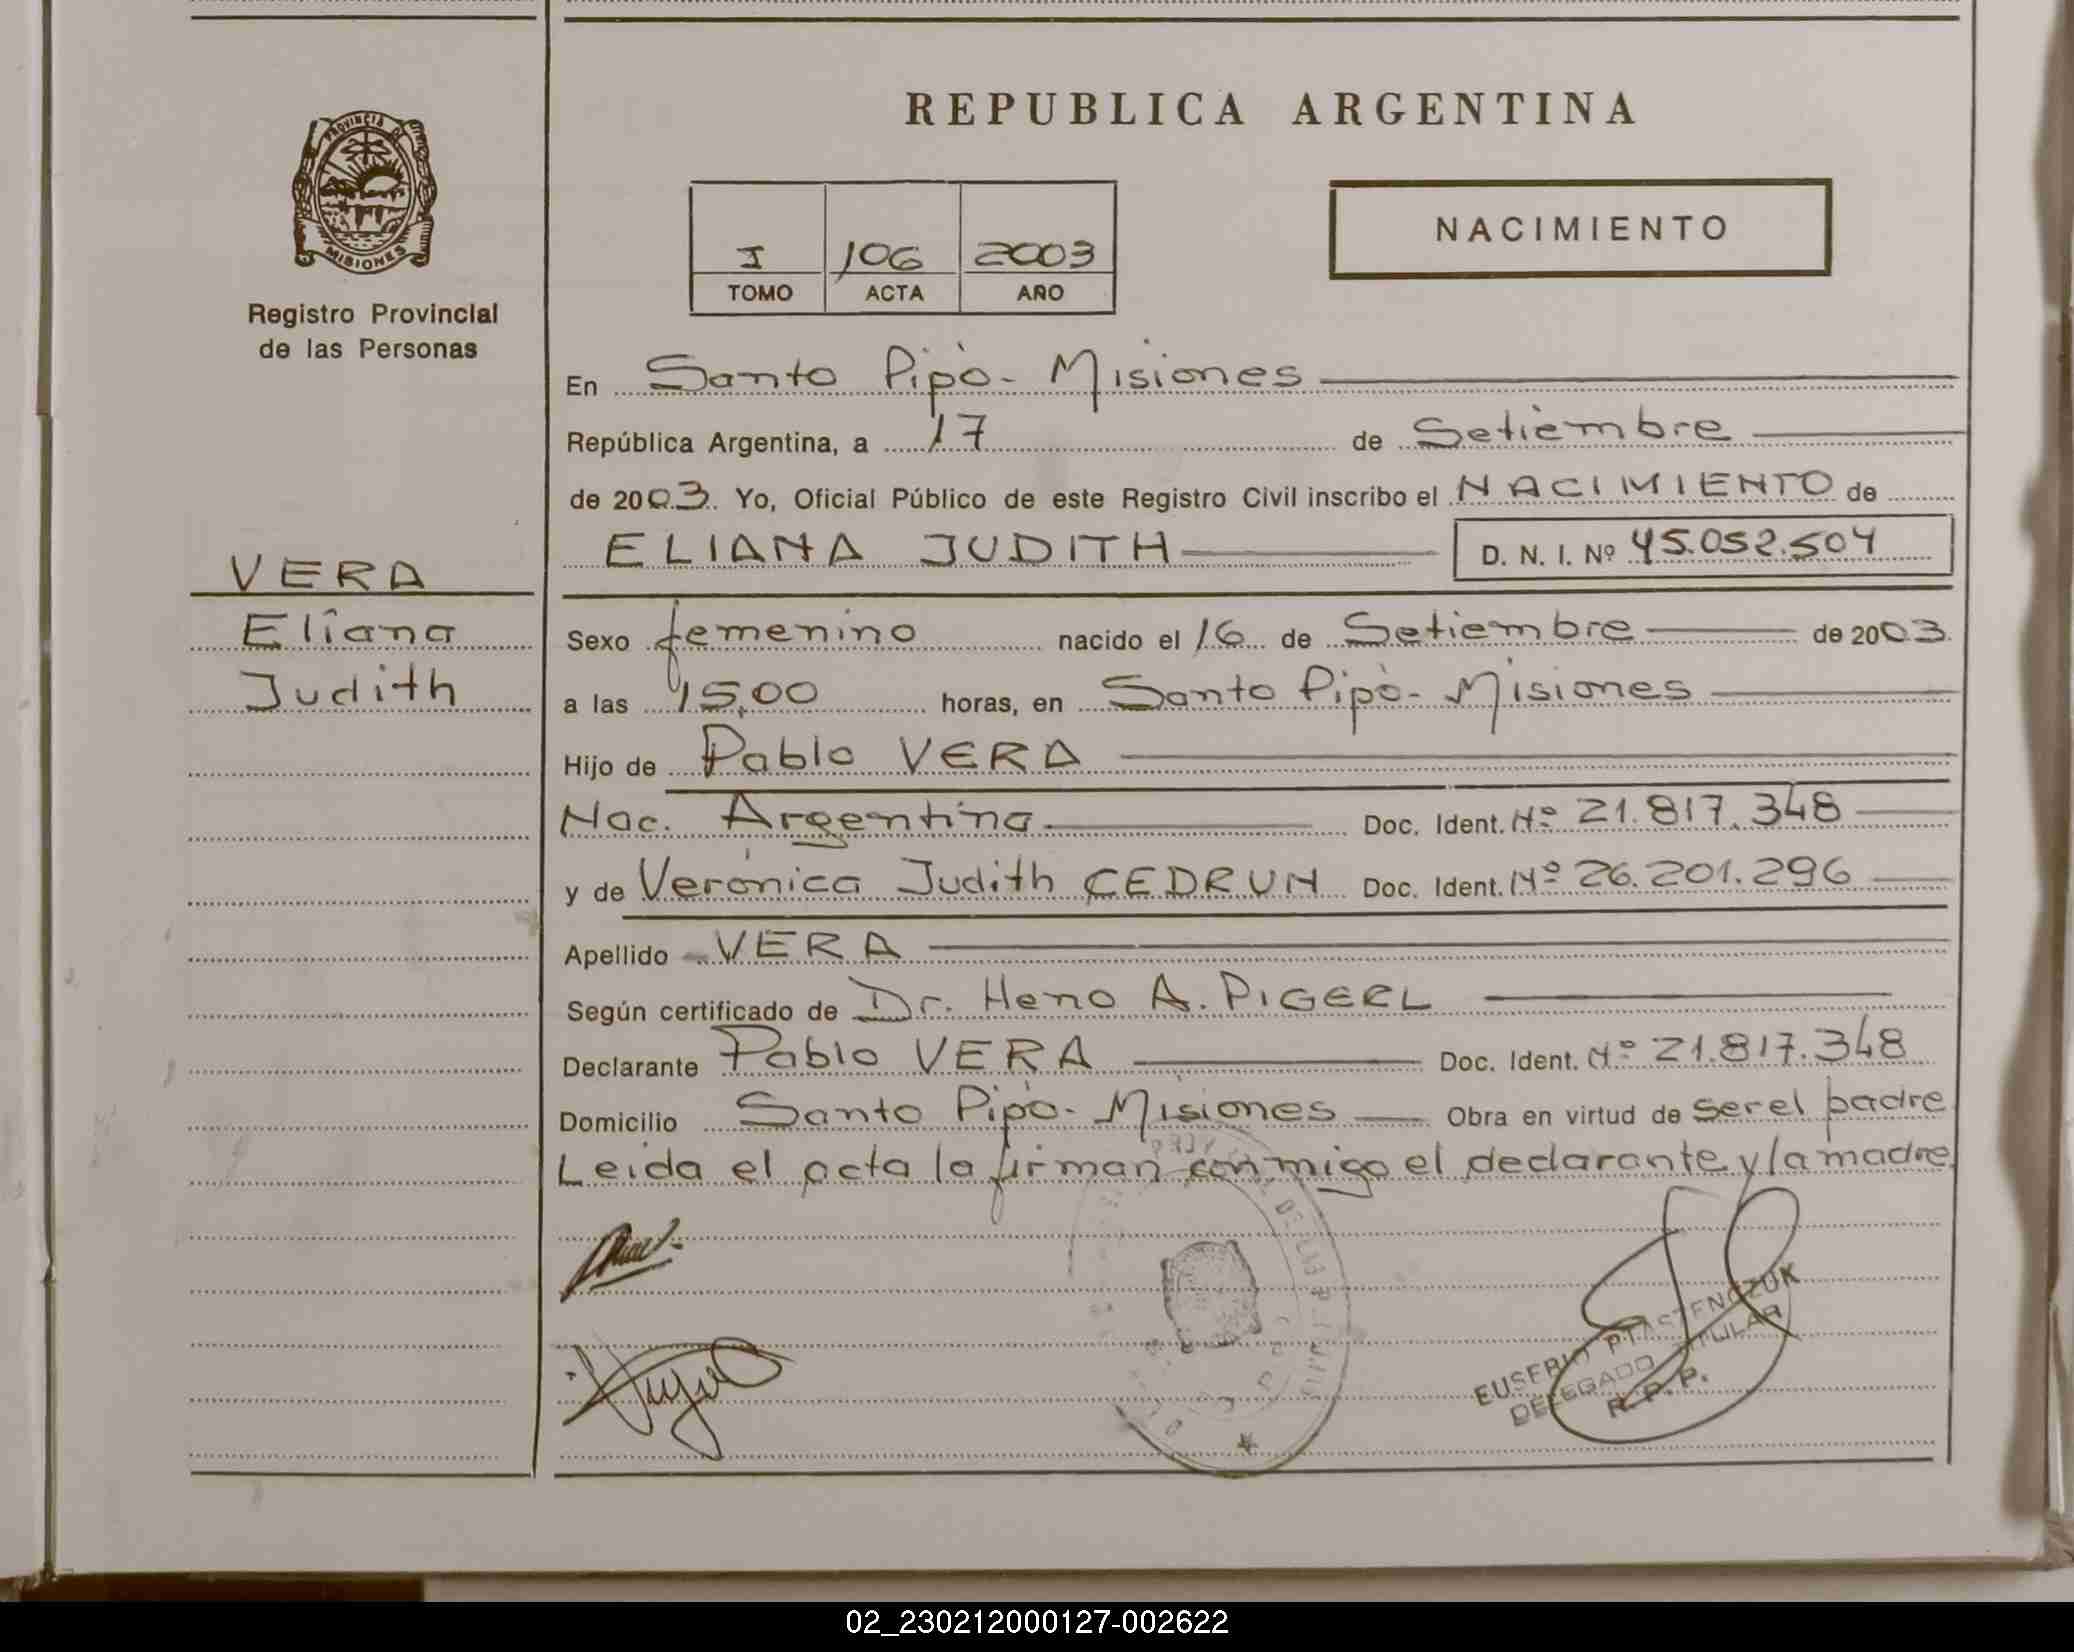 REPUBLICA ARGENTINA
PROVINCIA DE
MISIONES
Registro Provincial
de las Personas
NACIMIENTO
I 106 2003
TOMO ACTA AÑO
En Santo Pipó- Misiones
República Argentina, a 17 de Setiembre
de 2003. Yo, Oficial Público de este Registro Civil inscribo el NACIMIENTO de
ELIANA JUDITH D. N. I. Nº 45.052.504
VERA
Eliana
Judith
Sexo femenino nacido el 16 de Setiembre de 2003.
a las 15,00 horas, en Santo Pipó- Misiones
Hijo de Pablo VERA
Nac. Argentina. Doc. Ident. Nº 21.817.348
y de Verónica Judith CEDRUN Doc. Ident. Nº 26.201.296
Apellido VERA
Según certificado de Dr. Heno A. PIGERL
Declarante Pablo VERA Doc. Ident. Nº 21.817.348
Domicilio Santo Pipó- Misiones Obra en virtud de ser el padre
Leida el acta la firman conmigo el declarante y la madre
EUSEBIO
DELEGADO TITULAR
R.P.P.
02_230212000127-002622